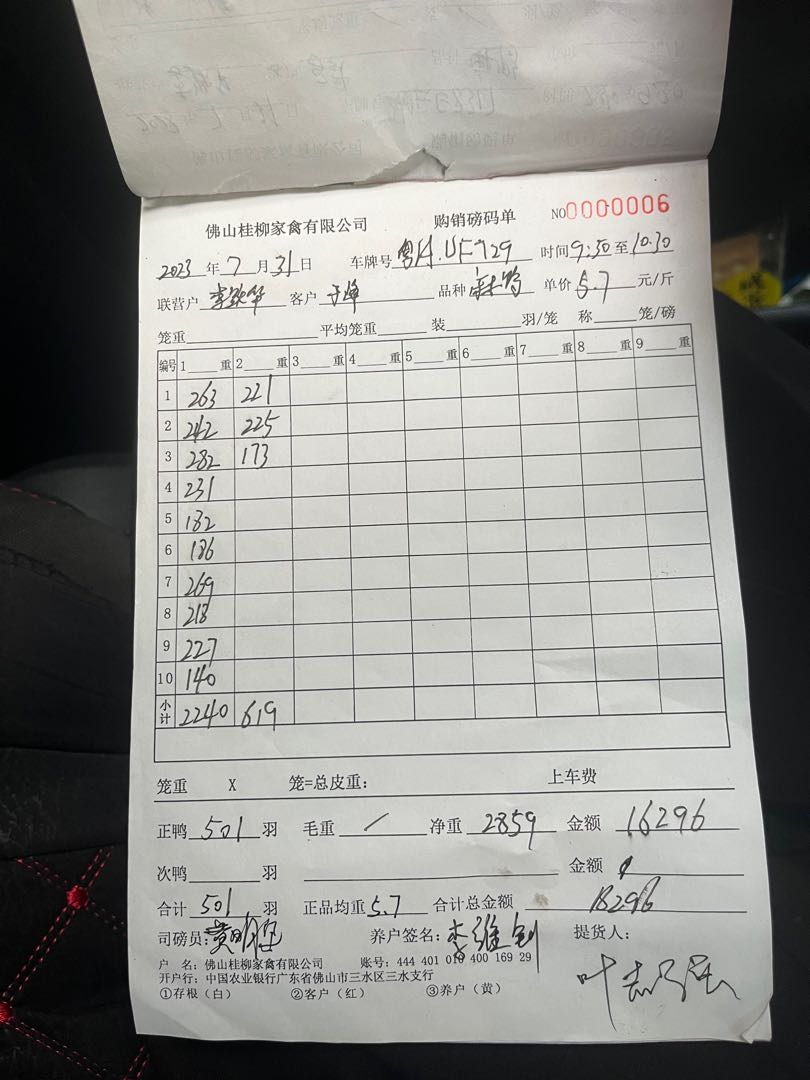 佛山桂柳家禽有限公司 购销磅码单 NO0000006
2023 年 7 月 31 日 车牌号 粤A.UF729 时间 9:30 至 10:30
联营户 客户 品种 麻鸭 单价 5.7 元/斤
笼重 平均笼重 装 羽/笼 称 笼/磅
编号 1 重 2 重 3 重 4 重 5 重 6 重 7 重 8 重 9 重
1 263 221
2 242 225
3 282 173
4 231
5 182
6 186
7 269
8 218
9 227
10 140
小计 2240 619
笼重 X 笼=总皮重: 上车费
正鸭 501 羽 毛重 / 净重 2859 金额 16296
次鸭 羽 金额
合计 501 羽 正品均重 5.7 合计总金额 16296
司磅员: 养户签名: 提货人:
户 名: 佛山桂柳家禽有限公司 账号: 444 401 010 400 169 29
开户行: 中国农业银行广东省佛山市三水区三水支行
①存根(白) ②客户(红) ③养户(黄)